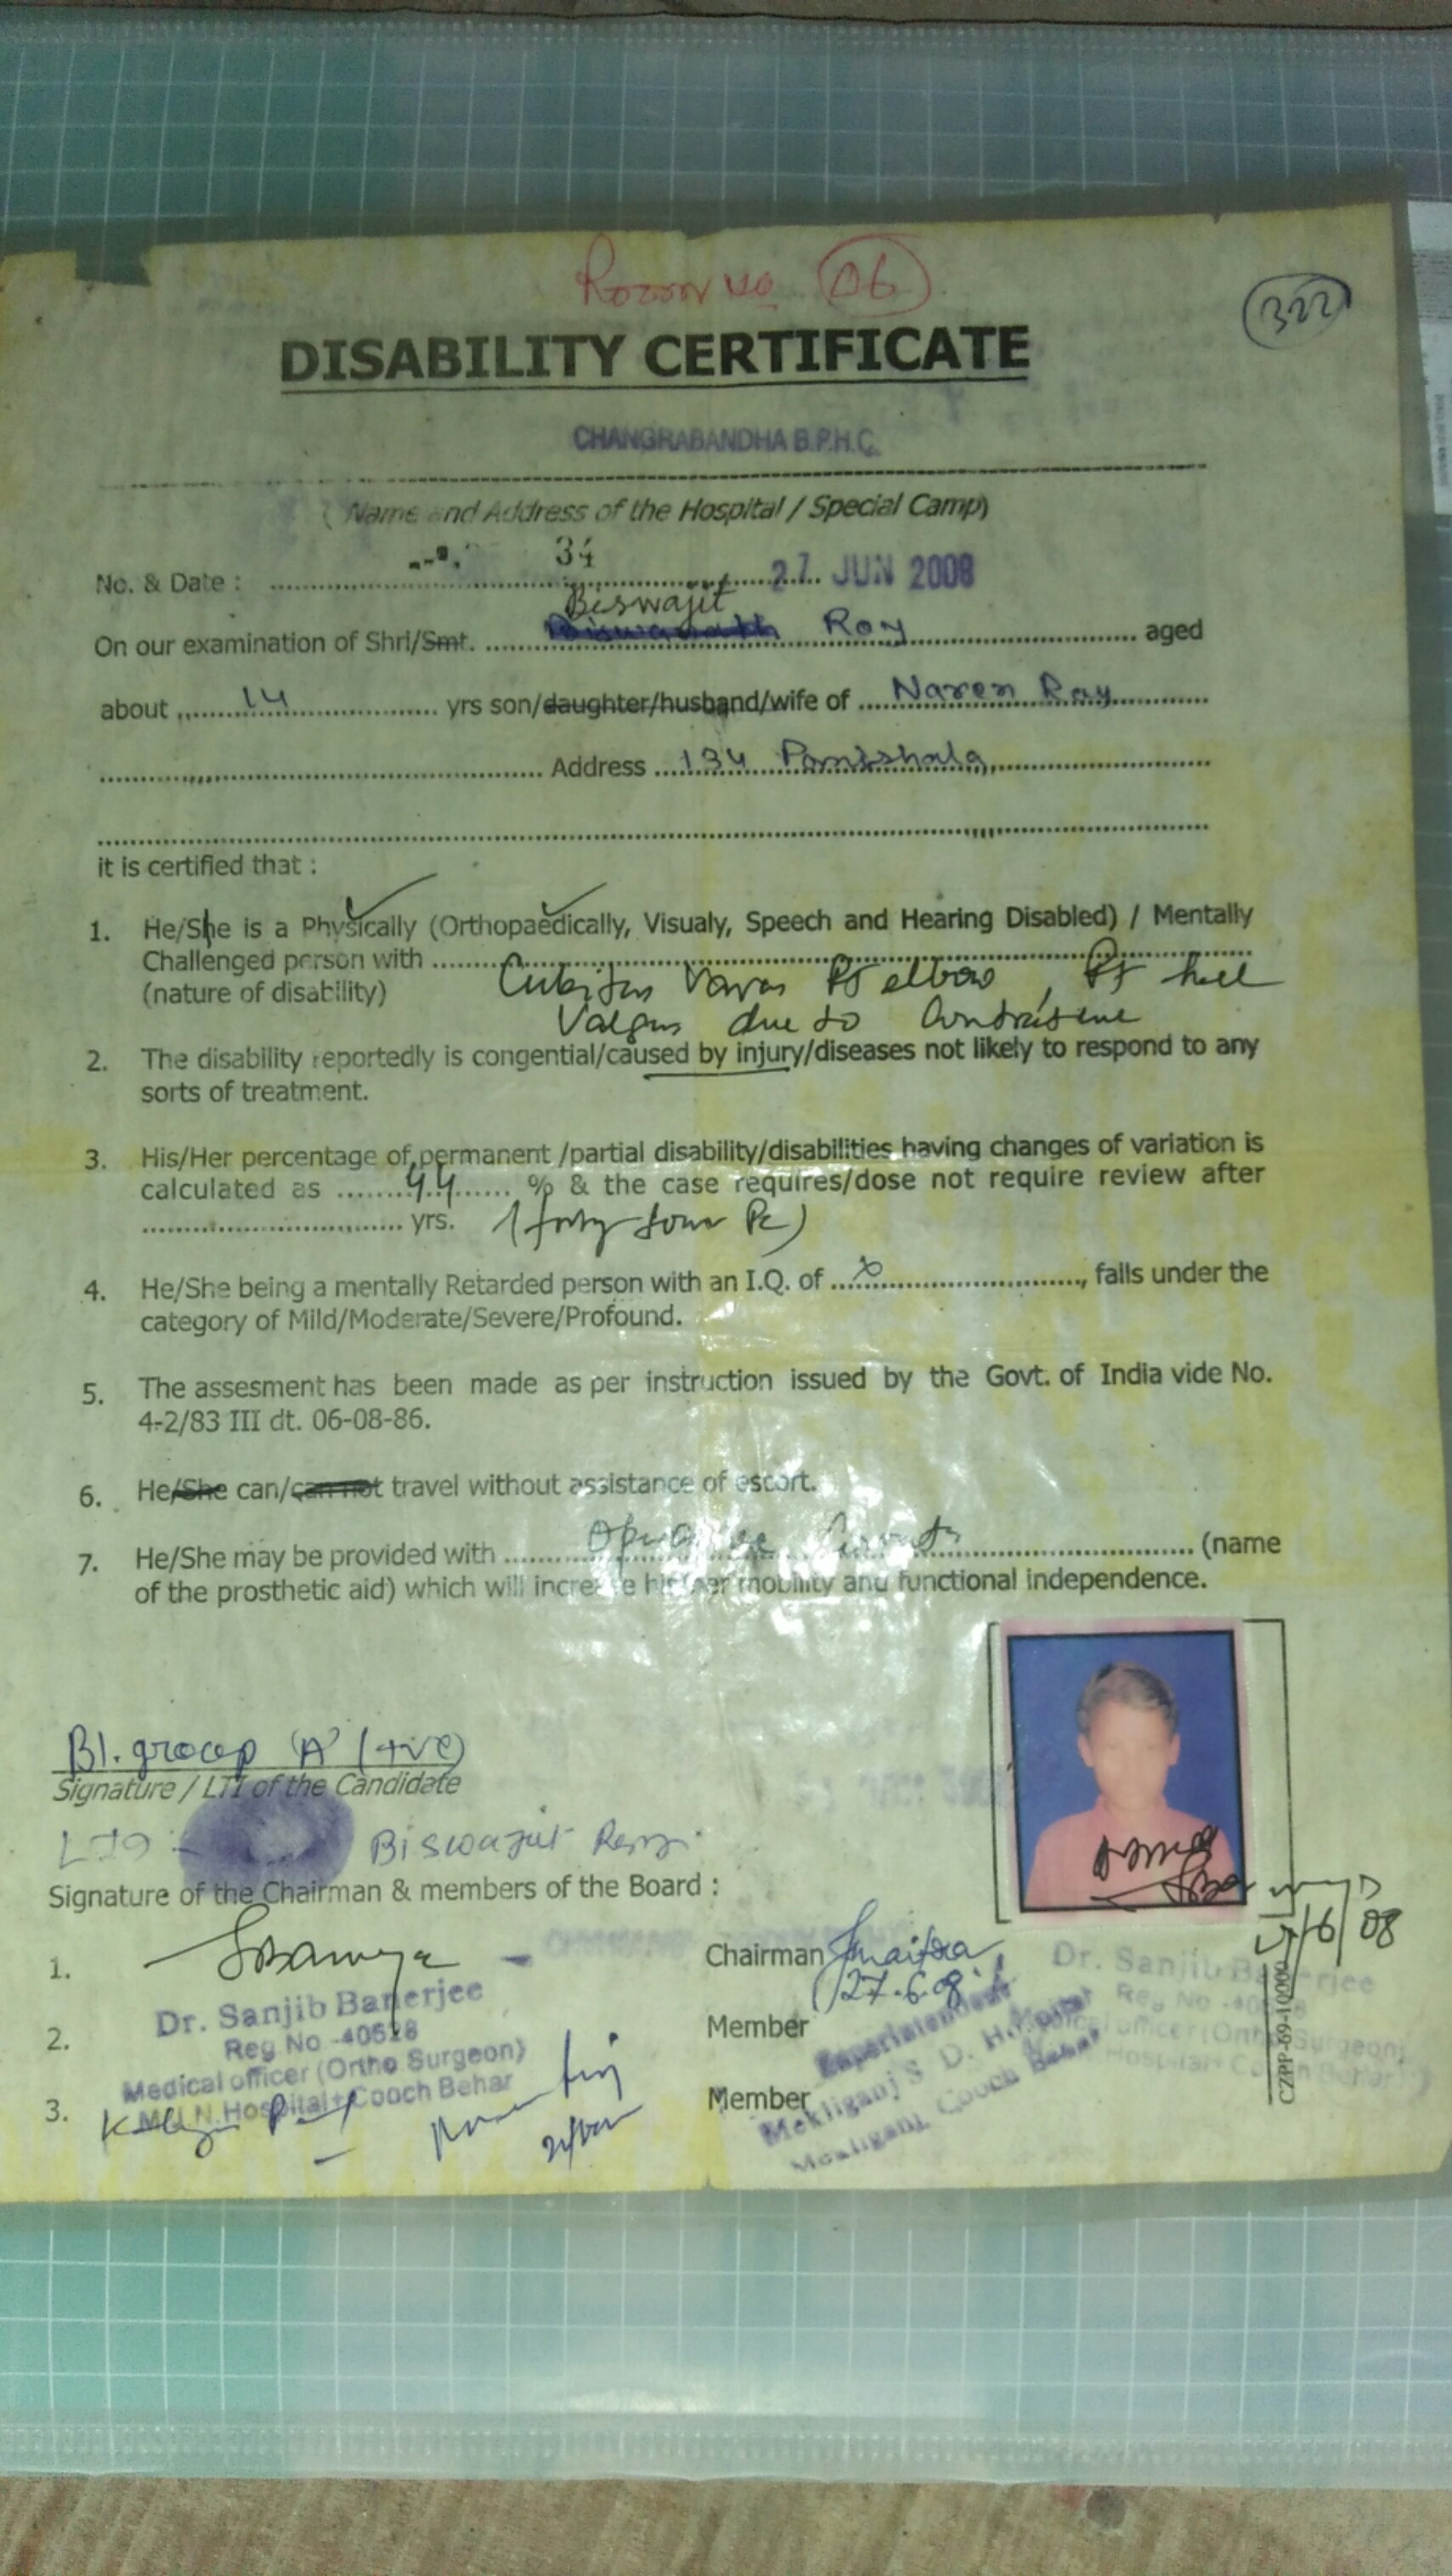 Room No 06
322
DISABILITY CERTIFICATE
CHANGRABANDHA B.P.H.C.
(Name and Address of the Hospital / Special Camp)
34
No. & Date : 27 JUN 2008
Biswajit
On our examination of Shri/Smt. Biswanath Roy aged
about 14 yrs son/daughter/husband/wife of Naren Roy
Address 134 Panishala
it is certified that :
1. He/She is a Physically (Orthopaedically, Visualy, Speech and Hearing Disabled) / Mentally
Challenged person with
(nature of disability) Cubitus Varus Rt elbow, Rt heel
Valgus due to
2. The disability reportedly is congential/caused by injury/diseases not likely to respond to any
sorts of treatment.
3. His/Her percentage of permanent /partial disability/disabilities having changes of variation is
calculated as 44 % & the case requires/dose not require review after
yrs. (forty four Pc)
4. He/She being a mentally Retarded person with an I.Q. of x, falls under the
category of Mild/Moderate/Severe/Profound.
5. The assesment has been made as per instruction issued by the Govt. of India vide No.
4-2/83 III dt. 06-08-86.
6. He/She can/can not travel without assistance of escort.
7. He/She may be provided with (name
of the prosthetic aid) which will increase his/her mobility and functional independence.
Bl. group 'A' (+ve)
Signature / LTI of the Candidate
Biswajit Roy
Signature of the Chairman & members of the Board :
1. Chairman
27.6.08
Dr. Sanjib Banerjee
Reg No -40528
2. Member
Medical officer (Ortho Surgeon)
M.J.N. Hospital + Cooch Behar
3. Member
Superintendent
Mekliganj S. D. Hospital
Mekliganj, Cooch Behar
Dr. Sanjib Banerjee
Reg No -40528
Medical officer (Ortho Surgeon)
Hospital + Cooch Behar
CZPP-69-10000